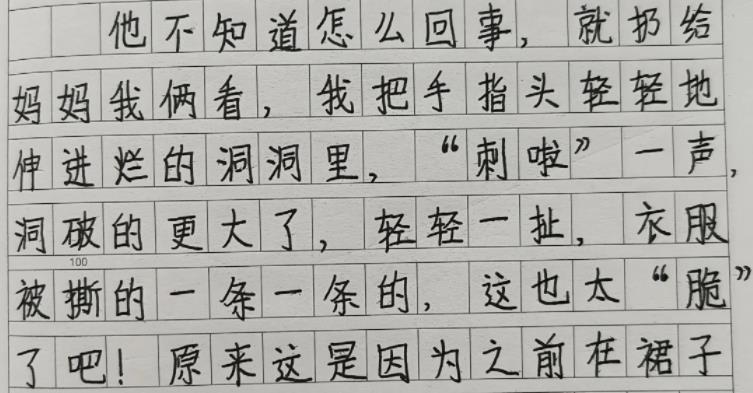 他不知道怎么回事，就扔给
妈妈我俩看，我把手指头轻轻地
伸进烂的洞洞里，“刺啦”一声，
洞破的更大了，轻轻一扯，衣服
100
被撕的一条一条的，这也太“脆”
了吧！原来这是因为之前在裙子